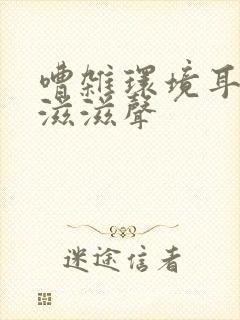 嘈雜環境耳
滋滋聲
迷途信者